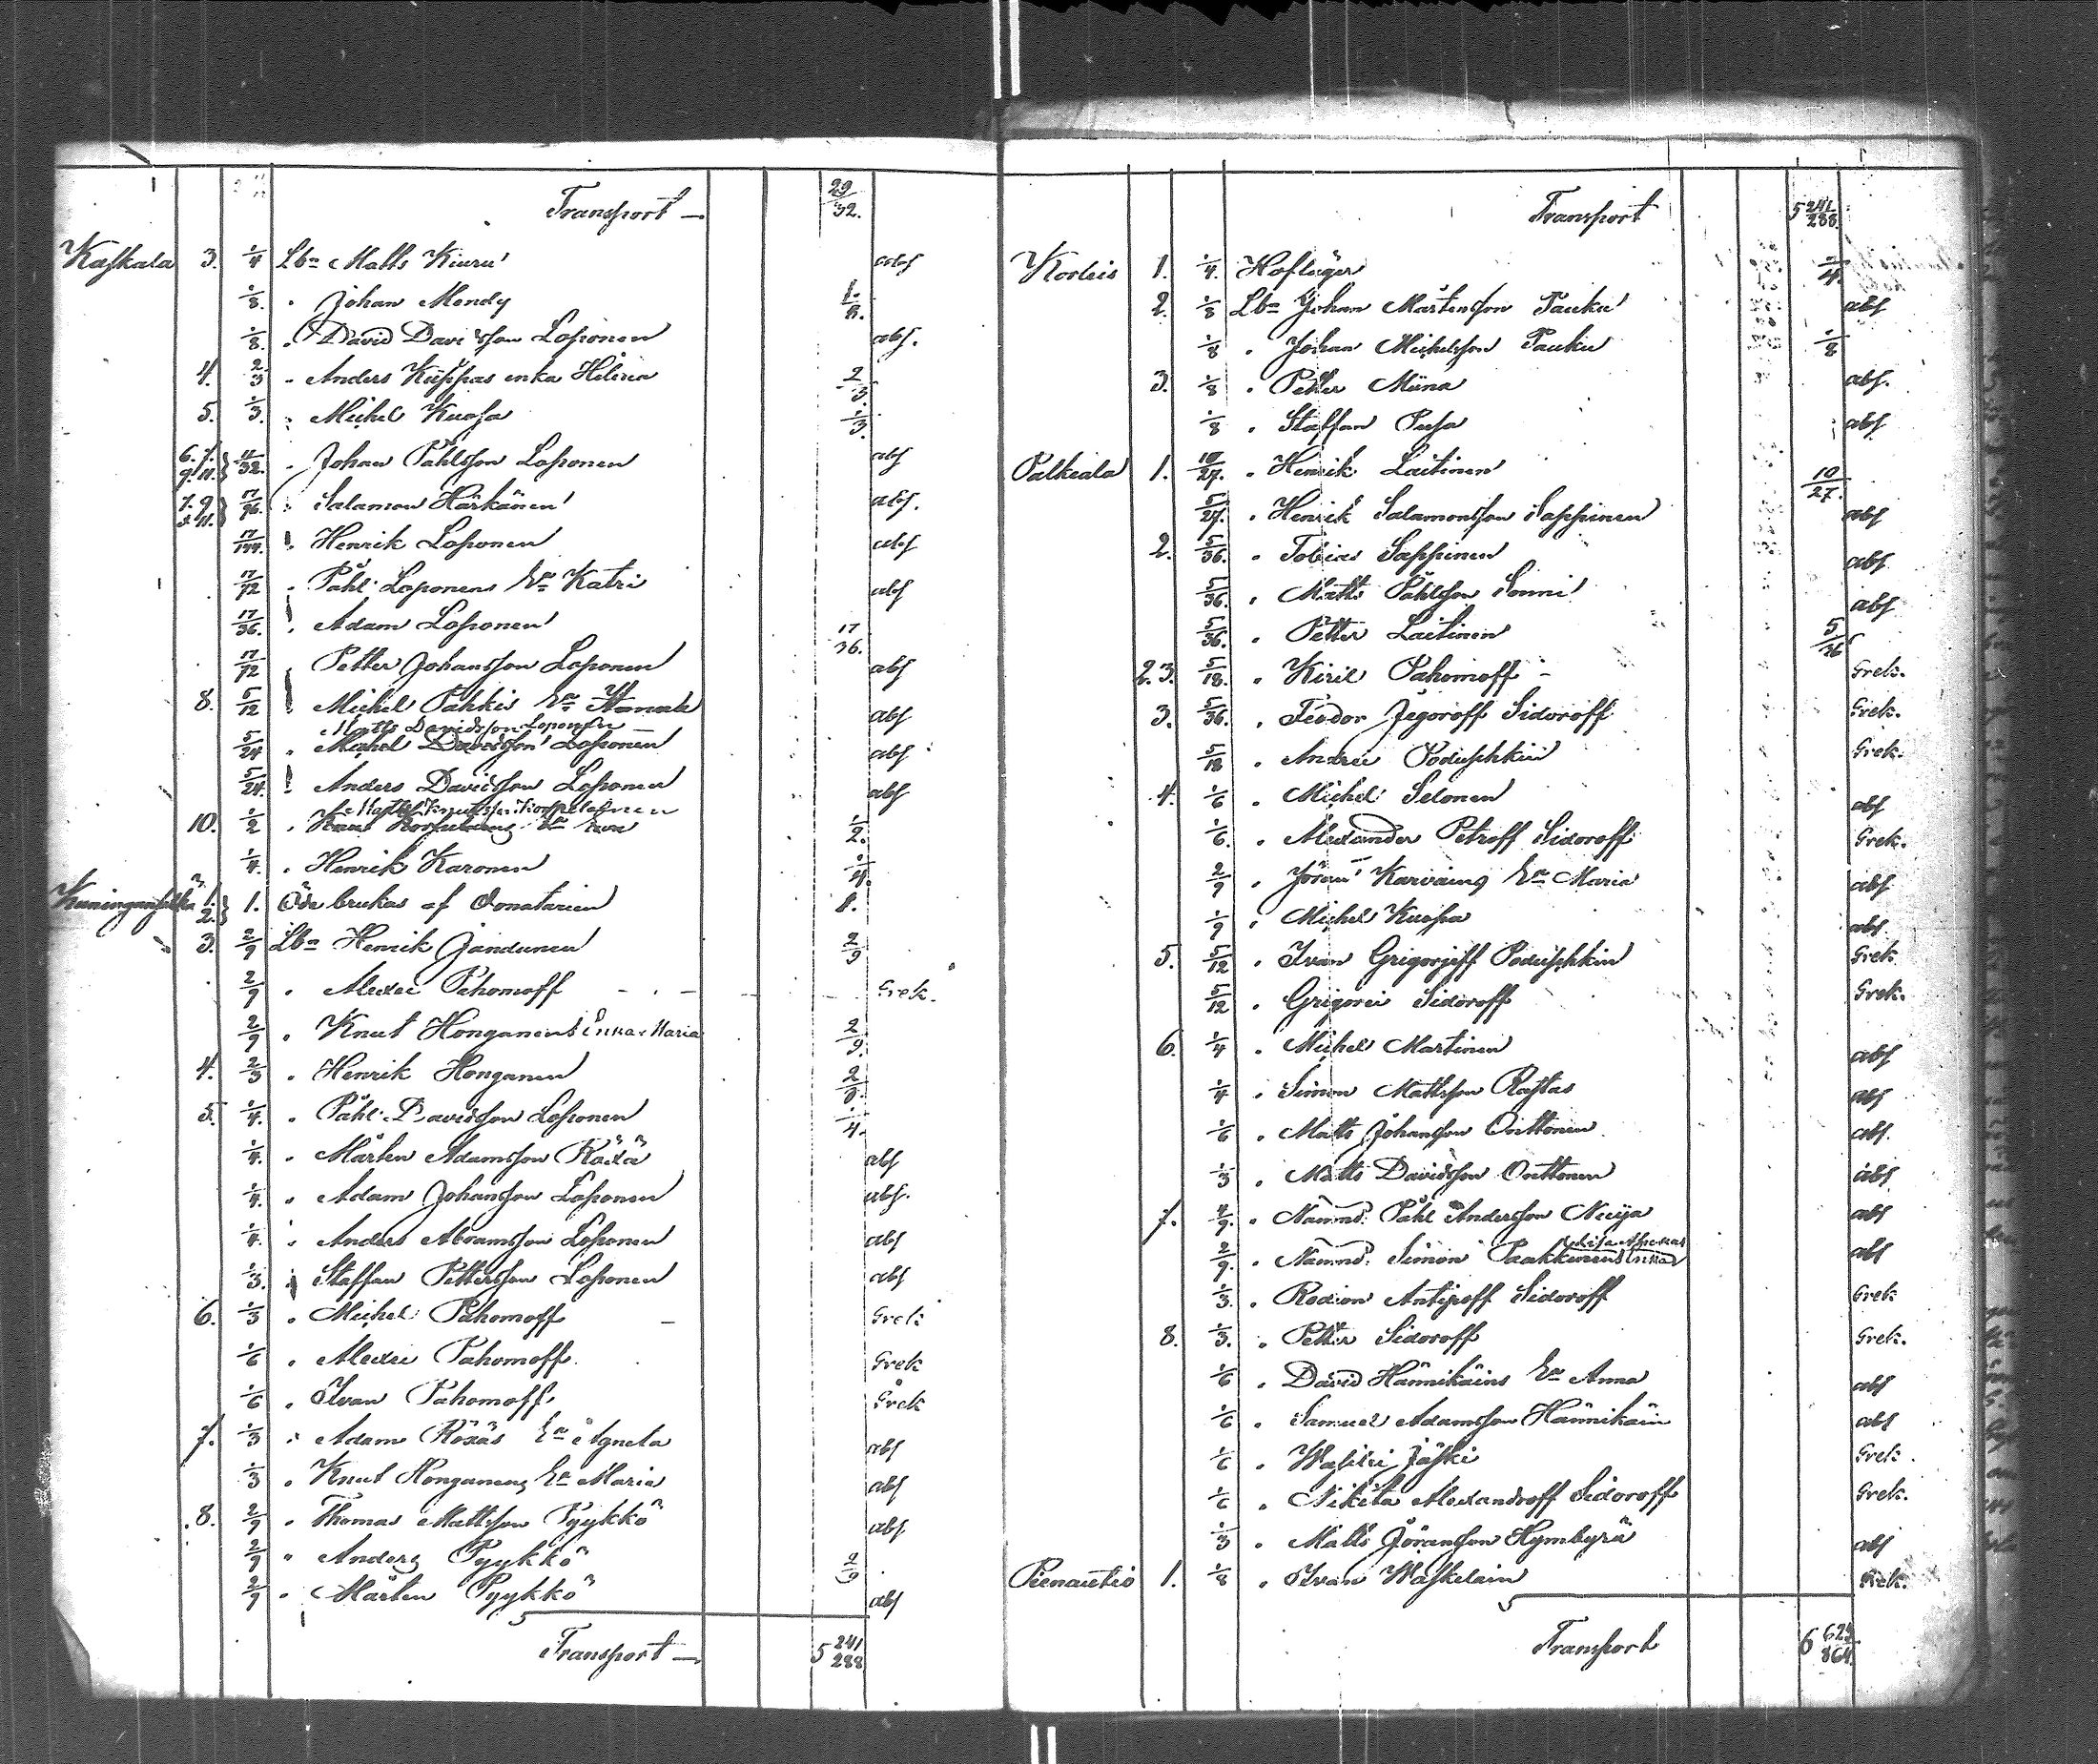 Transport — 29/32.
Kaskala 3. 1/4 Lbn Matts Kiuru abs
1/8. " Johan Mendy 1/8.
1/8. " David Davidsson Loponen abs.
4. 2/3 " Anders Kuppas enka Helena 2/3
5. 1/3. " Michel Kuosa 1/3.
6. 7. 9. 11. } 11/32. " Johan Påhlsson Loponen abs
7. 9 & 11. } 17/96. " Salamon Härkänen abs.
17/144. " Henrik Loponen abs
17/72 " Påhl Loponens Ea Katri abs
17/36. " Adam Loponen 17/36.
17/72 " Petter Johansson Loponen abs
8. 5/12 " Michel Pahkis Ea abs
Matts Davidsson Loponen
5/24 " Michel Davidsson Loponen abs
5/24. " Anders Davidsson Loponen abs
Matts Knutsson Korpelainen
10. 1/2 " Knut 1/2.
1/4. " Henrik Karonen 1/4.
Kuninganselkä 1. 2. } 1. Öde brukas af Donatarien 1.
3. 2/9 Lbn Henrik Jandunen 2/9
2/9 " Alexei Pahomoff Grek.
2/9 " Knut Honganens Enka Maria 2/9.
4. 2/3 " Henrik Honganen 2/3.
5. 1/4. " Påhl Davidsson Loponen 1/4.
1/4. " Mårten Adamsson Räxä abs
1/4. " Adam Johansson Loponen abs.
1/4. " Anders Abramsson Loponen abs
1/3. " Staffan Pettersson Loponen abs
6. 1/3 " Michel Pahomoff Grek
1/6 " Alexei Pahomoff. Grek
1/6 " Ivan Pahomoff Grek
7. 1/3 " Adam Räxäs Ea Agneta abs
1/3 " Knut Honganens Ea Maria abs
8. 2/9 " Thomas Mattsson Pyykkö abs
2/9 " Anders Pyykkö 2/9
2/9 " Mårten Pyykkö abs
Transport — 5 241/288
Transport 5 241/288.
Korleis 1. 1/4. Hofläger 1/4.
2. 1/8 Lbn Johan Mårtensson Pauku abs
1/8 " Johan Michelsson Pauku 1/8
3. 1/8 " Petter Miina abs.
1/8 " Staffan Pusa abs
Palkeala 1. 10/27. " Henrik Laitinen 10/27.
5/27. " Henrik Salamonsson Sappinen abs
2. 5/36. " Tobias Sappinen abs
5/36. " Matts Påhlsson Sonni abs
5/36. " Petter Laitinen 5/36
2. 3. 5/18. " Kiril Pahomoff Grek.
3. 5/36. " Feodor Jegoroff Sidoroff Grek.
5/18 " Andrei Poduschkin Grek.
4. 1/6 " Michel Selonen abs
1/6. " Alexander Petroff Sidoroff Grek.
2/9 " Jöran Karvains Ea Maria abs
1/9 " Michel Kuosa abs
5. 5/12 " Ivan Grigorjeff Poduschkin Grek
5/12 " Grigorei Sidoroff Grek.
6. 1/4 " Michel Martinen abs
1/4 " Simon Mattsson Rastas abs
1/6 " Matts Johansson Onttonen abs.
1/3 " Matts Davidsson Onttonen abs
7. 4/9. " Nämnd. Påhl Andersson Neija abs
2/9. " Nämnd. Simon Paakkinens Enka abs
1/3. " Rodion Antipoff Sidoroff Grek
8. 1/3. " Petter Sidoroff Grek.
1/6 " David Hännikäins Ea Anna abs
1/6 " Samuel Adamsson Hännikäin abs
1/6 " Wasilei Jäski Grek.
1/6 " Nikita Alexandroff Sidoroff Grek.
1/3 " Matts Jöransson Hymbyrä abs
Pienautio 1. 1/8 " Ivan Waskelain Grek.
Transport 6 629/864.